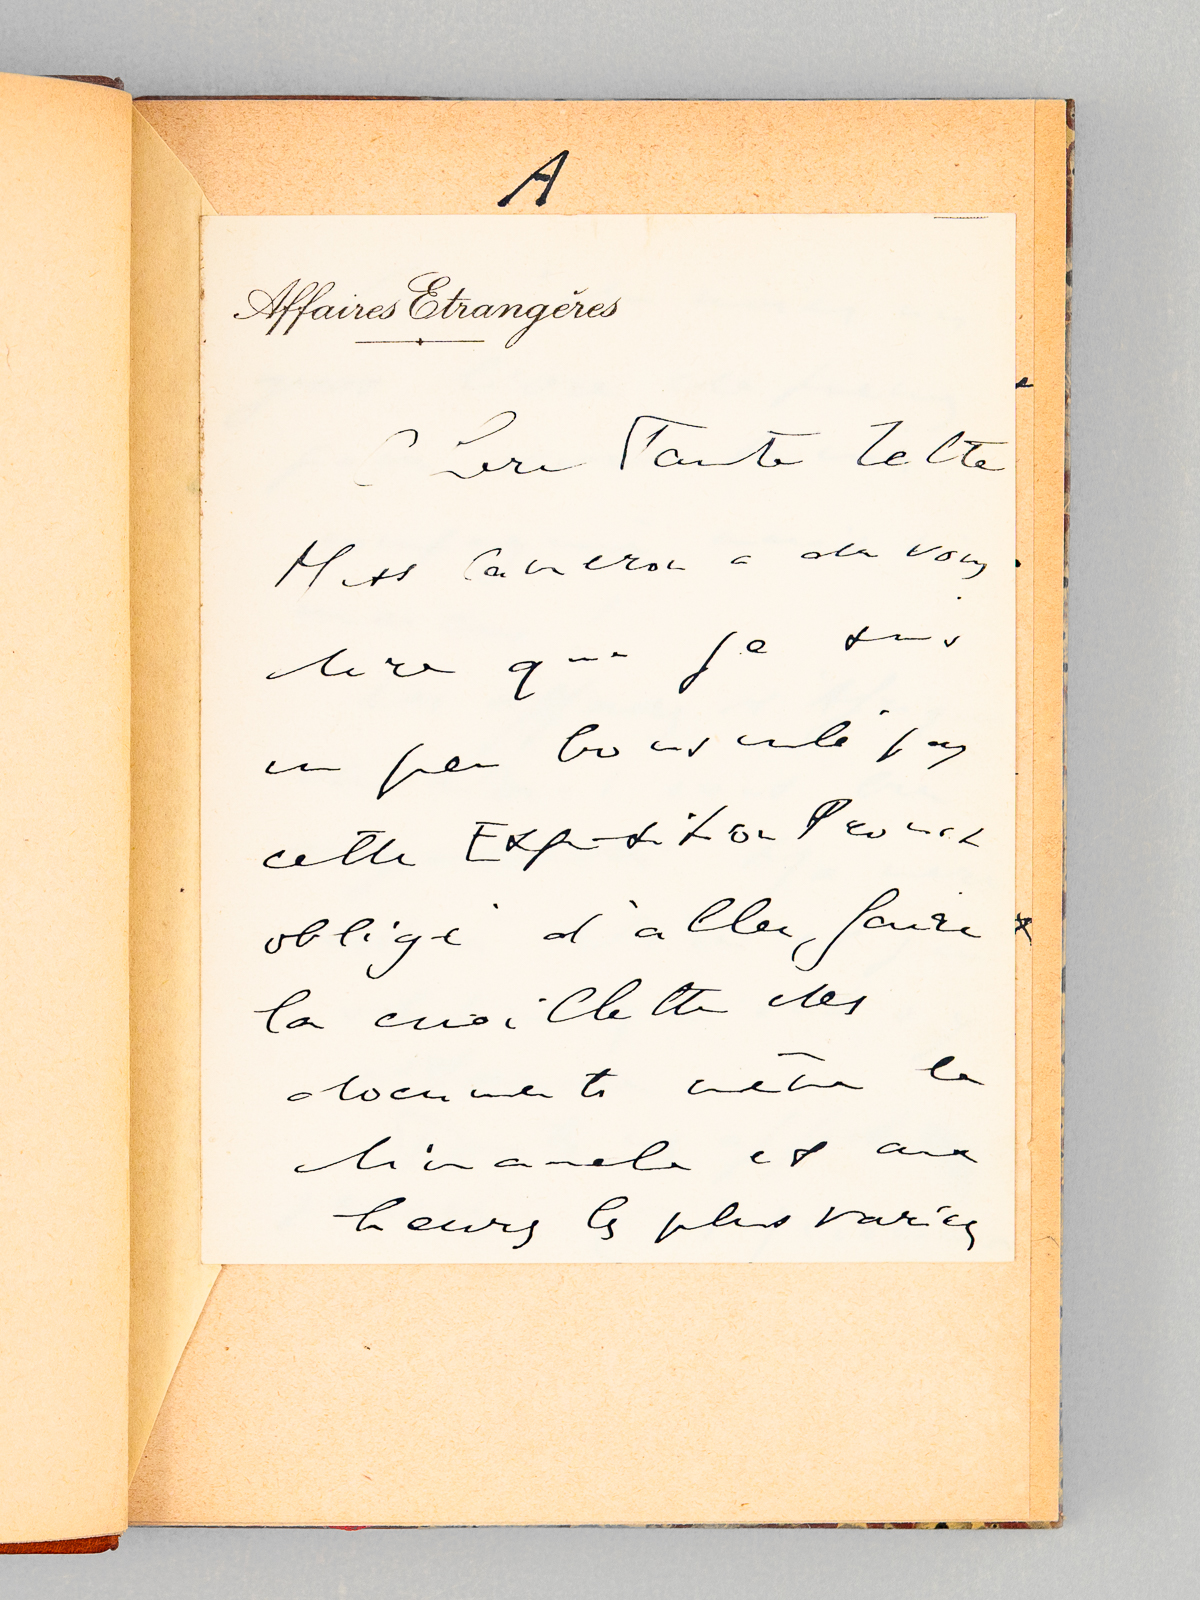 A
Affaires Etrangères
Chère Tante
Miss Cameron a du vous
dire que je suis
un peu bousculé par
cette Exposition Proust
obligé d'aller faire
la cueillette des
documents même le
dimanche et aux
heures les plus variées